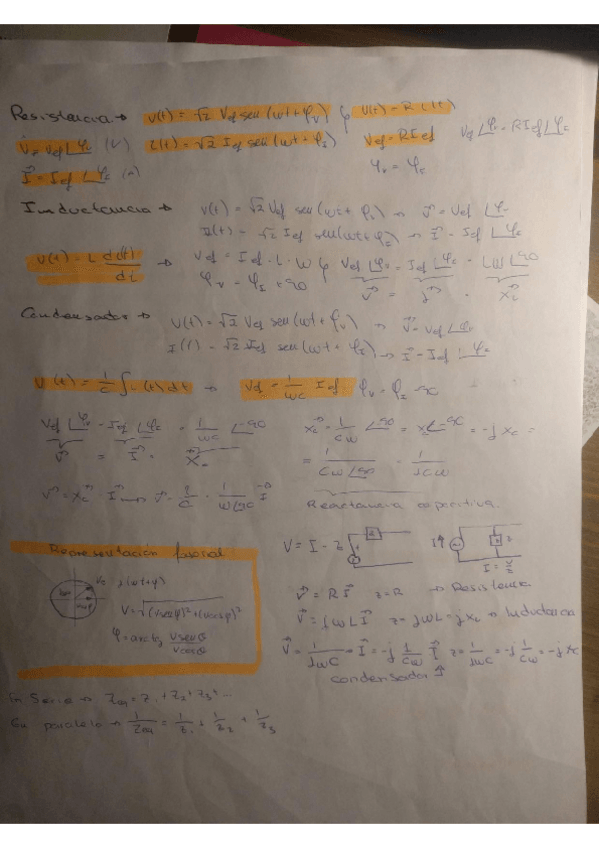 Resistencia → v(t) = √2 Vef sen(wt + φv) } v(t) = R i(t)
V = Vef ∠φv (V) i(t) = √2 Ief sen(wt + φI) Vef = R Ief Vef ∠φv = R Ief ∠φI
I = Ief ∠φI (A) φv = φI
Inductancia → v(t) = √2 Vef sen(wt + φv) → V = Vef ∠φv
I(t) = √2 Ief sen(wt + φI) → I = Ief ∠φI
v(t) = L di(t)/dt → Vef = Ief · L · W } Vef ∠φv = Ief ∠φI · LW ∠90
φv - φI = 90
Condensador → v(t) = √2 Vef sen(wt + φv) → V = Vef ∠φv
I(t) = √2 Ief sen(wt + φI) → I = Ief ∠φI
v(t) = 1/C ∫ i(t) dt → Vef = 1/wC Ief
Vef ∠φv = Ief ∠φI = 1/wC ∠-90 Xc = 1/Cw ∠-90 = Xc ∠-90 = -j Xc =
V = I · Xc = 1/Cw∠90 = 1/jCw
Reactancia capacitiva.
Representación fasorial V = I · Z
j(wt+φ) I = V/Z
V = √(vsenφ)² + (vcosφ)² V = R I Z = R → Resistencia
φ = arctg vsenθ/vcosθ V = jωL I Z = jWL = jXL → Inductancia
V = 1/jWC I = -j 1/Cw I Z = 1/jWC = -j 1/Cw = -j Xc
condensador ↑
En Serie → Zeq = Z1 + Z2 + Z3 + ...
En paralelo → 1/Zeq = 1/Z1 + 1/Z2 + 1/Z3